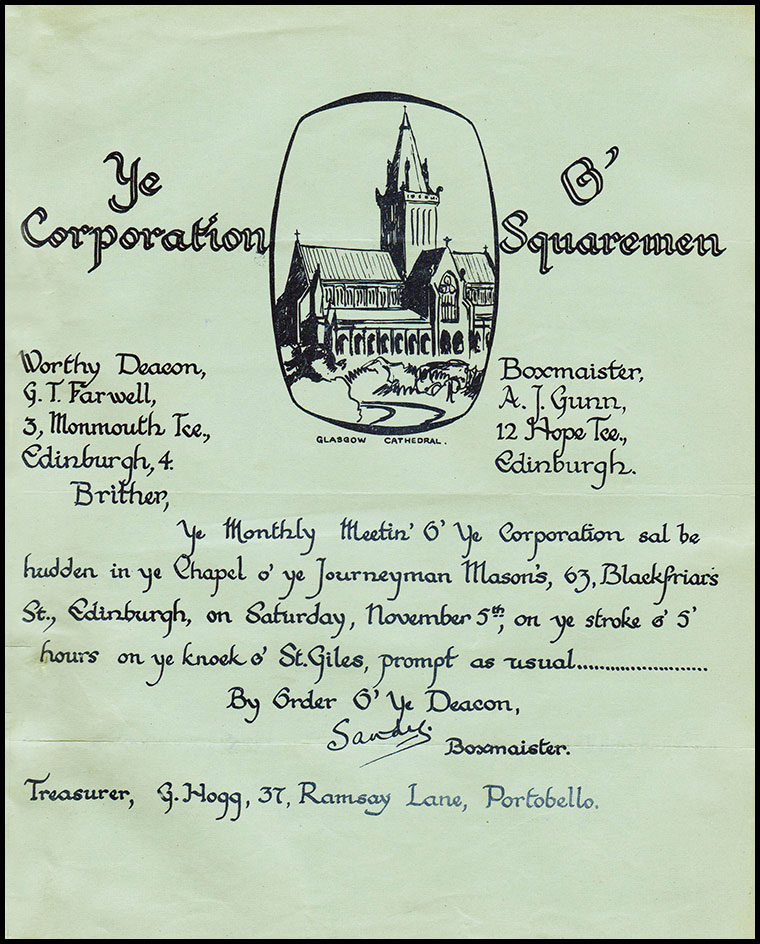 Ye
Corporation
O'
Squaremen
GLASGOW CATHEDRAL.
Worthy Deacon,
G. T. Farwell,
3, Monmouth Tce.,
Edinburgh, 4.
Boxmaister,
A. J. Gunn,
12 Hope Tce.,
Edinburgh.
Brither,
Ye Monthly Meetin' O' Ye Corporation sal be
hudden in ye Chapel o' ye Journeyman Mason's, 63, Blackfriars
St., Edinburgh, on Saturday, November 5th, on ye stroke o' 5'
hours on ye knock o' St. Giles, prompt as usual.......................
By Order O' Ye Deacon,
Sandy.
Boxmaister.
Treasurer, G. Hogg, 37, Ramsay Lane, Portobello.